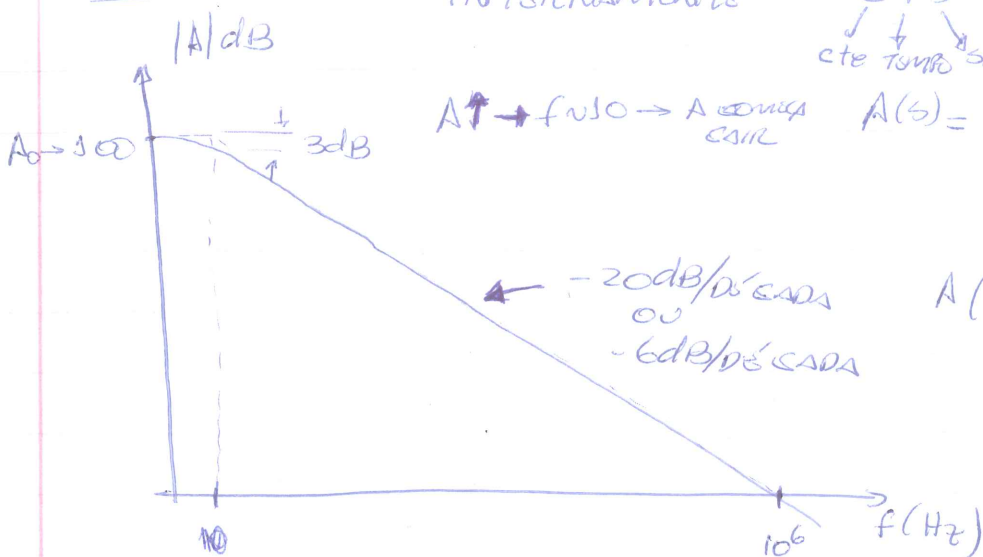 |A| dB
cte TEMPO
A↑ → f~10 → A COMEÇA CAIR
A(s) =
A₀→100
3dB
-20dB/DÉCADA
OU
-6dB/DÉCADA
A(
10
10⁶
f(Hz)